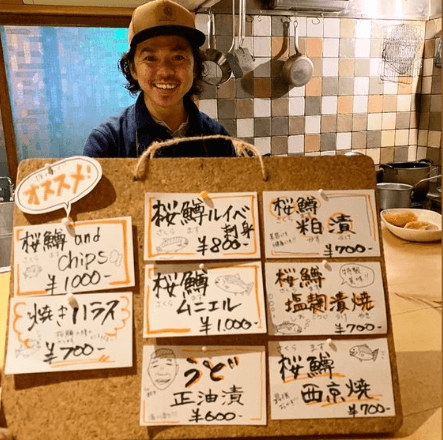 オススメ
桜鱒 and
さくら ます
chips
¥1000-
焼きハラス
¥700-
桜鱒ルイベ
さくら ます
刺身
¥800-
桜鱒
ムニエル
¥1,000-
うど
正油漬
¥600-
桜鱒
粕漬
¥700-
桜鱒
塩麹漬焼
¥700-
桜鱒
西京焼
¥700-